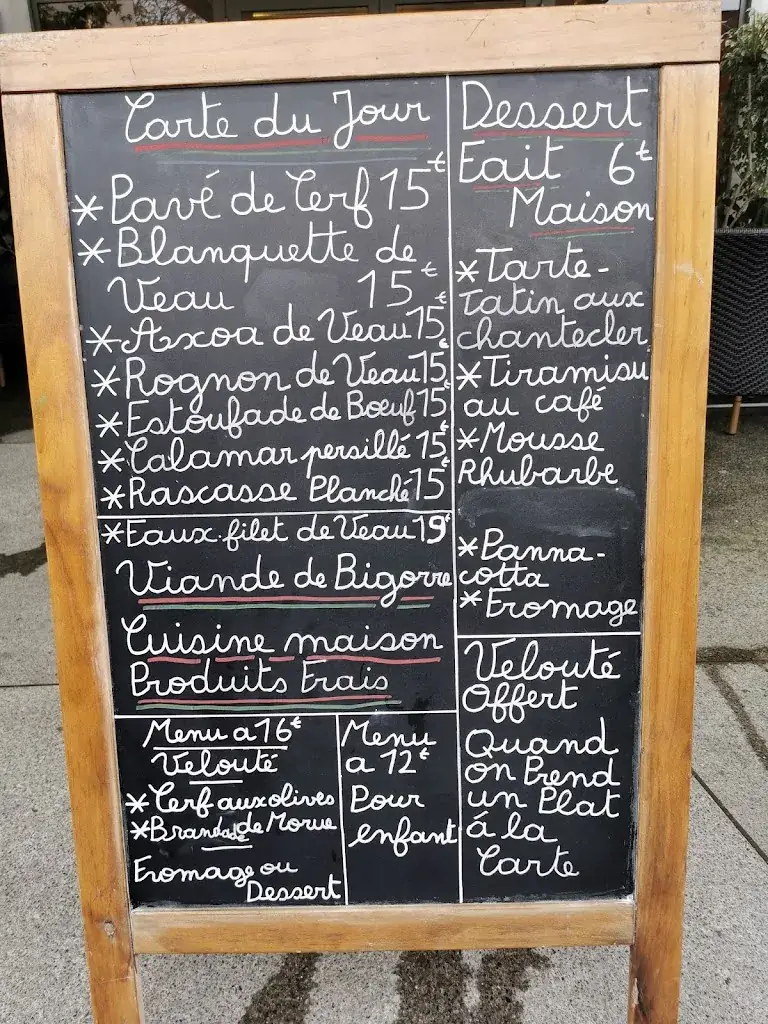 Carte du Jour
*Pavé de Cerf 15€
*Blanquette de
Veau 15€
*Axoa de Veau 15€
*Rognon de Veau 15€
*Estoufade de Bœuf 15€
*Calamar persillé 15€
*Rascasse Planché 15€
*Faux.filet de Veau 19€
Viande de Bigorre
Cuisine maison
Produits Frais
Menu a 16€
Velouté
*Cerf aux olives
*Brandade de Morue
Fromage ou
Dessert
Menu
a 12€
Pour
enfant
Dessert
Fait 6€
Maison
*Tarte-
Tatin aux
chantecler
*Tiramisu
au café
*Mousse
Rhubarbe
*Panna-
cotta
*Fromage
Velouté
Offert
Quand
on Prend
un Plat
á la
Carte